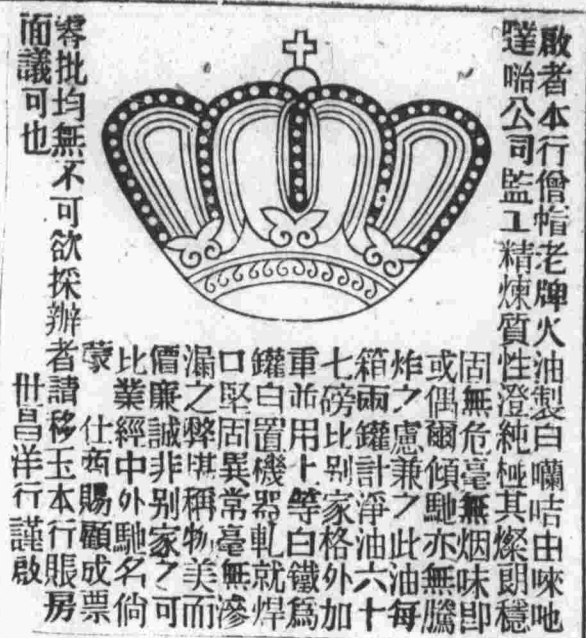 啟者本行僧帽老牌火油製自嚹咭由唻吔
躂咍公司監工精煉質性澄純極其燦朗穩
固無危毫無烟味即
或偶爾傾馳亦無騰
炸之慮兼之此油每
箱兩罐計淨油六十
七磅比别家格外加
重並用上等白鐵爲
罐自置機器軋就焊
口堅固異常毫無滲
漏之弊堪稱物美而
價廉誠非别家之可
比業經中外馳名倘
蒙 仕商賜顧成票
零批均無不可欲採辦者請移玉本行賬房
面議可也 卅昌洋行謹啟